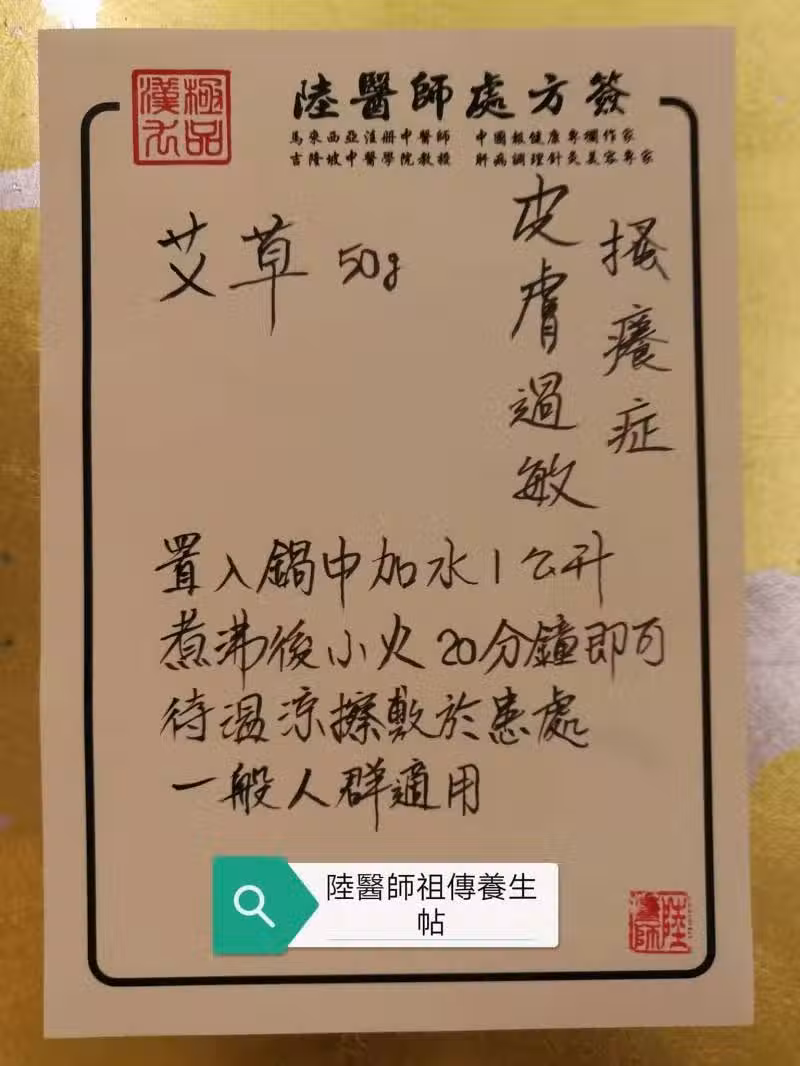 極品
漢方
陸醫師處方簽
馬來西亞注册中醫師 中國報健康專欄作家
吉隆坡中醫學院教授 肝病調理針灸美容專家
搔癢症
皮膚過敏
艾草 50g
置入鍋中加水1公升
煮沸後小火20分鐘即可
待溫涼擦敷於患處
一般人群適用
陸醫師祖傳養生
帖